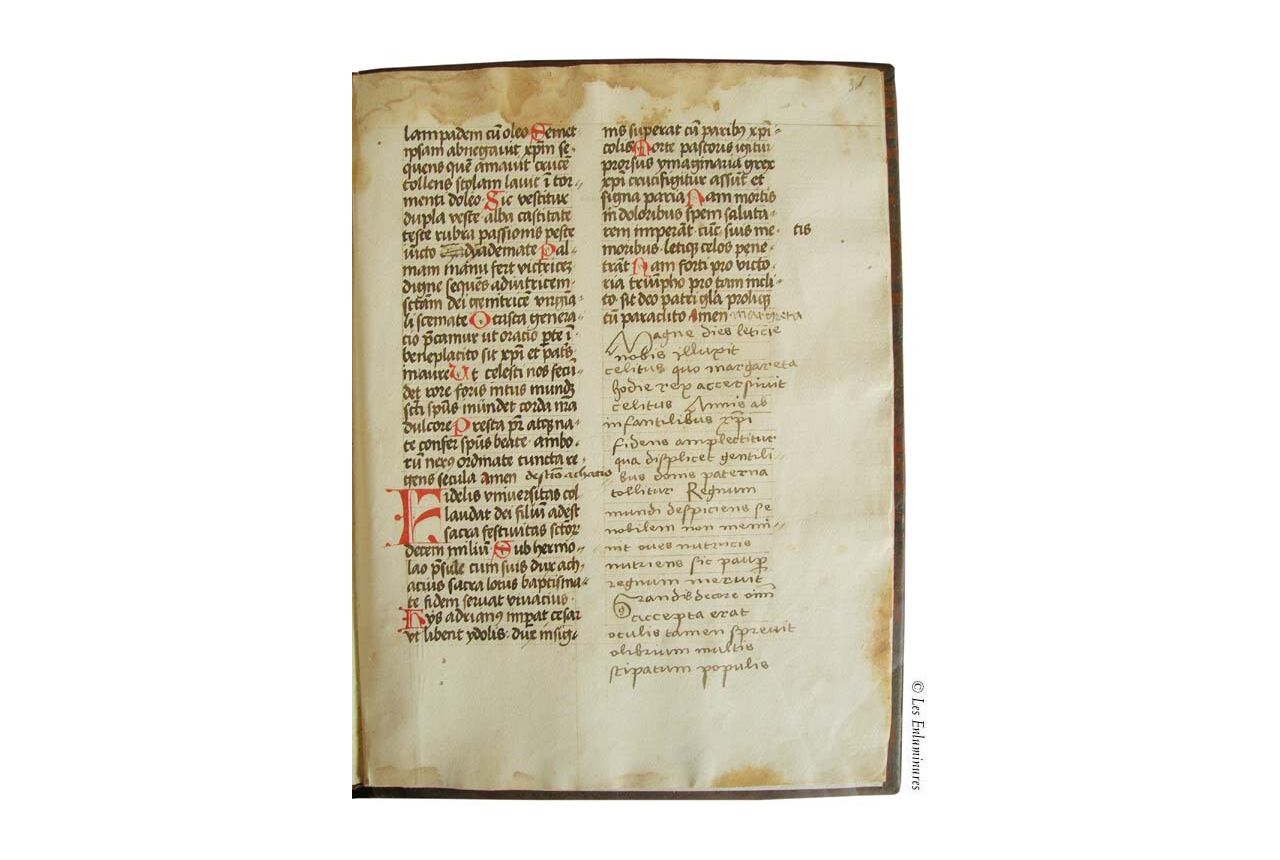 lampadem cū oleo Semet
ipsam abnegauit xp̄m se-
quens quē amauit crucē
tollens stolam lauit ī tor-
menti doleo Sic vestitur
dupla veste alba castitate
teste rubra passionis peste
uicto dyademate Pal-
mam manu fert victricez
digne sequēs adiutricem
sctām dei genitricē virginā-
li scemate O casta genera-
cio p̄camur ut oracio p̄te ī
beneplacito sit xp̄i et patīs
mature Ut celesti nos fecū
det rore foris intus mundz
sctī spūs mundet corda nrā
dulcore Presta pr̄ atqz na-
te confer spūs beate ambo-
rū nexus ordinate cuncta re-
gens secula Amen de sctō achacio
Fidelis vniuersitas col
laudat dei filiū adest
sacra festiuitas sctōr
decem miliū Sub hermo-
lao p̄sule cum suis dux ach-
acius sacra lotus baptisma-
te fidem seruat viuacius
Hys adrianus imperat cesar
vt libent ydolis dux insig-
nis superat cū paribz xp̄i-
colis Morte pastoris igitur
prorsus ymaginaria grex
xp̄i crucifigitur assūt et
signa paria Nam mortis
in doloribus spem saluta-
rem imperāt cūc suis me- tis
moribus letiqz celos pene-
trāt Nam forti pro victo-
ria triūpho pro tam incli-
to sit deo patri glā proliqz
cū paraclito Amen margreta
Magne dies leticie
nobis illuxit
celitus quo margareta
hodie rex accersiuit
celitus Annis ab
infantilibus xp̄i
fidens amplectitur
qua displicet gentili-
bus domō paterna
tollitur Regnum
mundi despiciens se
nobilem non memi-
nit oues nutricis
nutriens sic paup̄
regnum meruit
Grandis decore om̄i
accepta erat
oculis tamen spreuit
olibrium multis
stipatum populis
31
© Les Enluminures